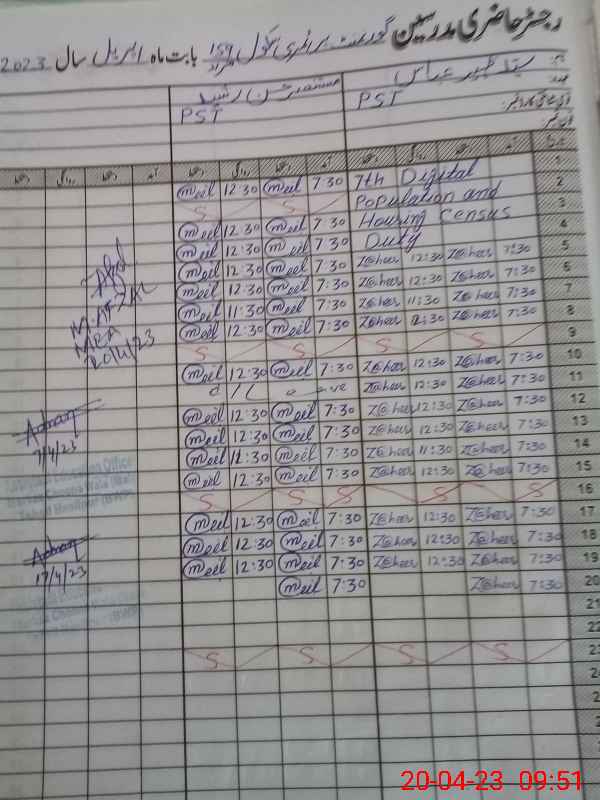 رجسٹر حاضری مدرسین گورنمنٹ پرائمری سکول 159 مراد بابت ماہ اپریل سال 2023
سید ظہیر عباس
PST PST
1
meil 12:30 meil 7:30 7th Digital 2
S S Population and 3
meil 12:30 meil 7:30 Housing Census 4
meil 12:30 meil 7:30 Duty 5
meil 12:30 meil 7:30 Z@heer 12:30 Z@heer 7:30 6
meil 12:30 meil 7:30 Z@heer 12:30 Z@heer 7:30 7
meil 11:30 meil 7:30 Z@heer 11:30 Z@heer 7:30 8
meil 12:30 meil 7:30 Z@heer 12:30 Z@heer 7:30
S S S S 9
meil 12:30 meil 7:30 Z@heer 12:30 Z@heer 7:30 10
Z@heer 12:30 Z@heer 7:30 11
meil 12:30 meil 7:30 Z@heer 12:30 Z@heer 7:30 12
meil 12:30 meil 7:30 Z@heer 12:30 Z@heer 7:30 13
meil 12:30 meil 7:30 Z@heer 11:30 Z@heer 7:30 14
meil 12:30 meil 7:30 Z@heer 12:30 Z@heer 7:30 15
S S S S S 16
meil 12:30 meil 7:30 Z@heer 12:30 Z@heer 7:30 17
meil 12:30 meil 7:30 Z@heer 12:30 Z@heer 7:30 18
meil 12:30 meil 7:30 Z@heer 12:30 Z@heer 7:30 19
meil 7:30 Z@heer 7:30 20
21
22
S S S S 23
M. AFZAL
MEA
20/4/23
Adnan
7/4/23
Adnan
17/4/23
20-04-23 09:51